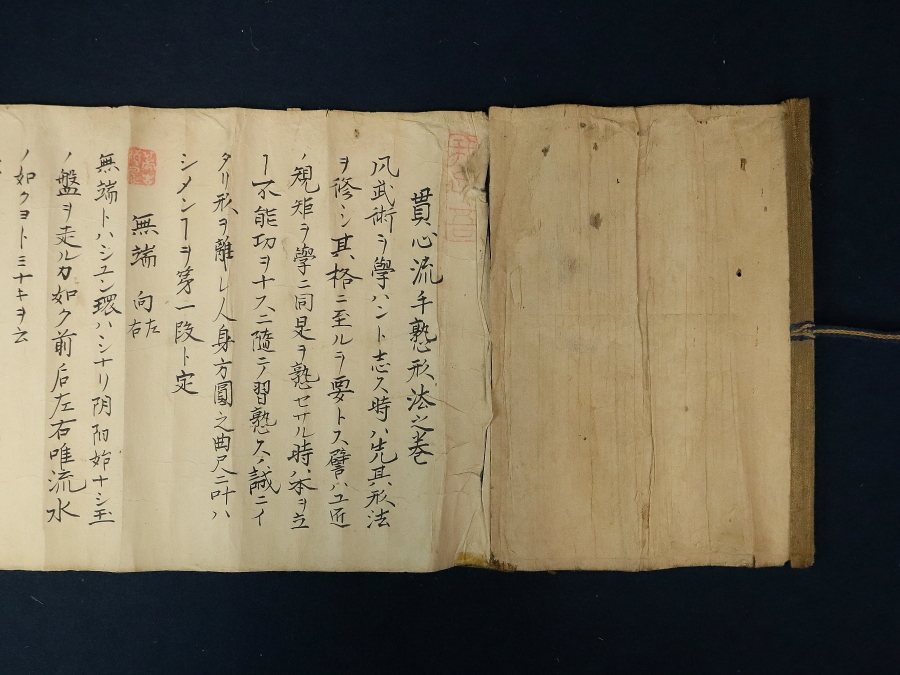 貫心流手塾形法之巻
凡武術ヲ學ハント志ス時ハ先其形法
ヲ修シ其格ニ至ルヲ要トス譬ハ工匠
ノ規矩ヲ學ニ同是ヲ熟セサル時ハ本ヲ立
ヿ不能功ヲナスニ隨テ習熟ス誠ニイ
タリ形ヲ離レ人身方圓之曲尺ニ叶ハ
シメンヿヲ第一段ト定
無端 向左右
無端トハシユン環ハシナリ阴阳始ナシ玉
ノ盤ヲ走ルカ如ク前后左右唯流水
ノ如クヨトミナキヲ云